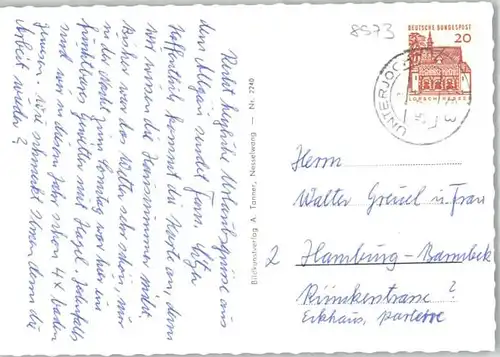 8973
DEUTSCHE BUNDESPOST
20
LORSCH/HESSEN
UNTERJOCH
Recht herzliche Urlaubsgrüsse aus
dem Allgäu sendet Fam.
Hoffentlich kommt die Karte an, denn
wir wissen die Hausnummer nicht.
Bisher war das Wetter sehr schön, nur
in der Nacht zum Sonntag war hier ein
furchtbares Gewitter mit Hagel. Jedenfalls
sind wir in diesem Jahr schon 4x baden
gewesen. Wie schmeckt Ihnen denn die
Arbeit wieder?
Blickkunstverlag A. Tanner, Nesselwang — Nr. 2240
Herrn
Walter Greuel u. Frau
2 Hamburg-Barmbeck
Rümkerstrasse ?
Eckhaus, parterre